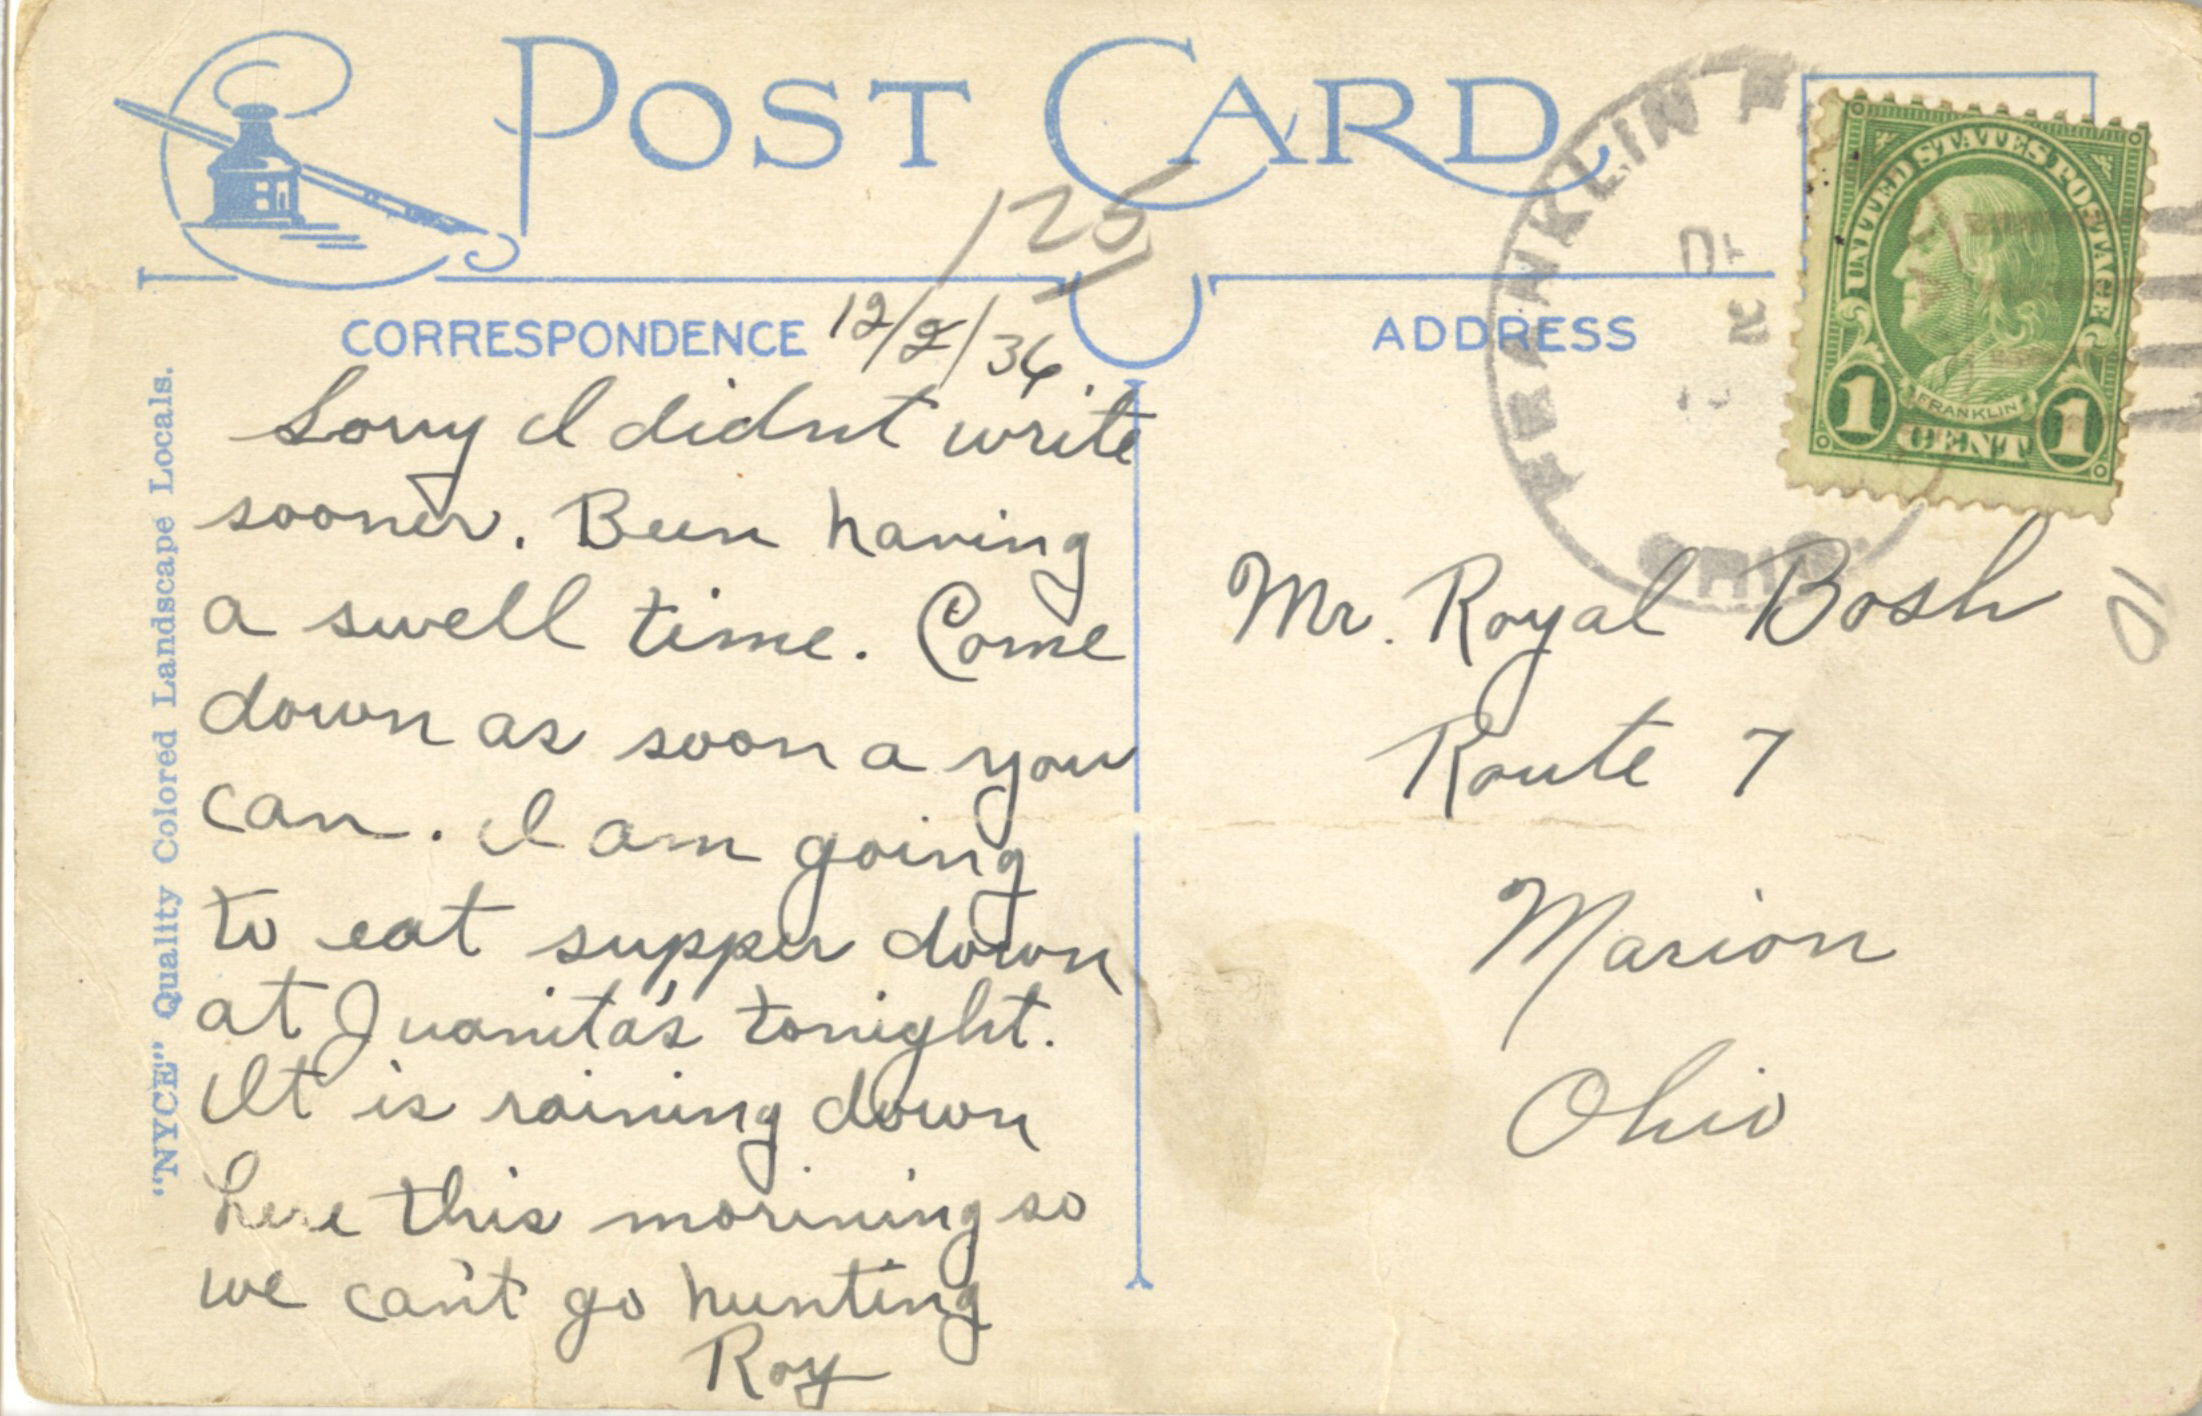 POST CARD
125
CORRESPONDENCE
12/2/36
ADDRESS
Sorry I didnt write
sooner. Been having
a swell time. Come
down as soon a you
can. I am going
to eat supper down
at Juanita's tonight.
It is raining down
here this morining so
we can't go hunting
Roy
"NYCE" Quality Colored Landscape Locals.
FRANKLIN
OHIO
UNITED STATES POSTAGE
FRANKLIN
1 CENT 1
Mr. Royal Bosh
Route 7
Marion
Ohio
10